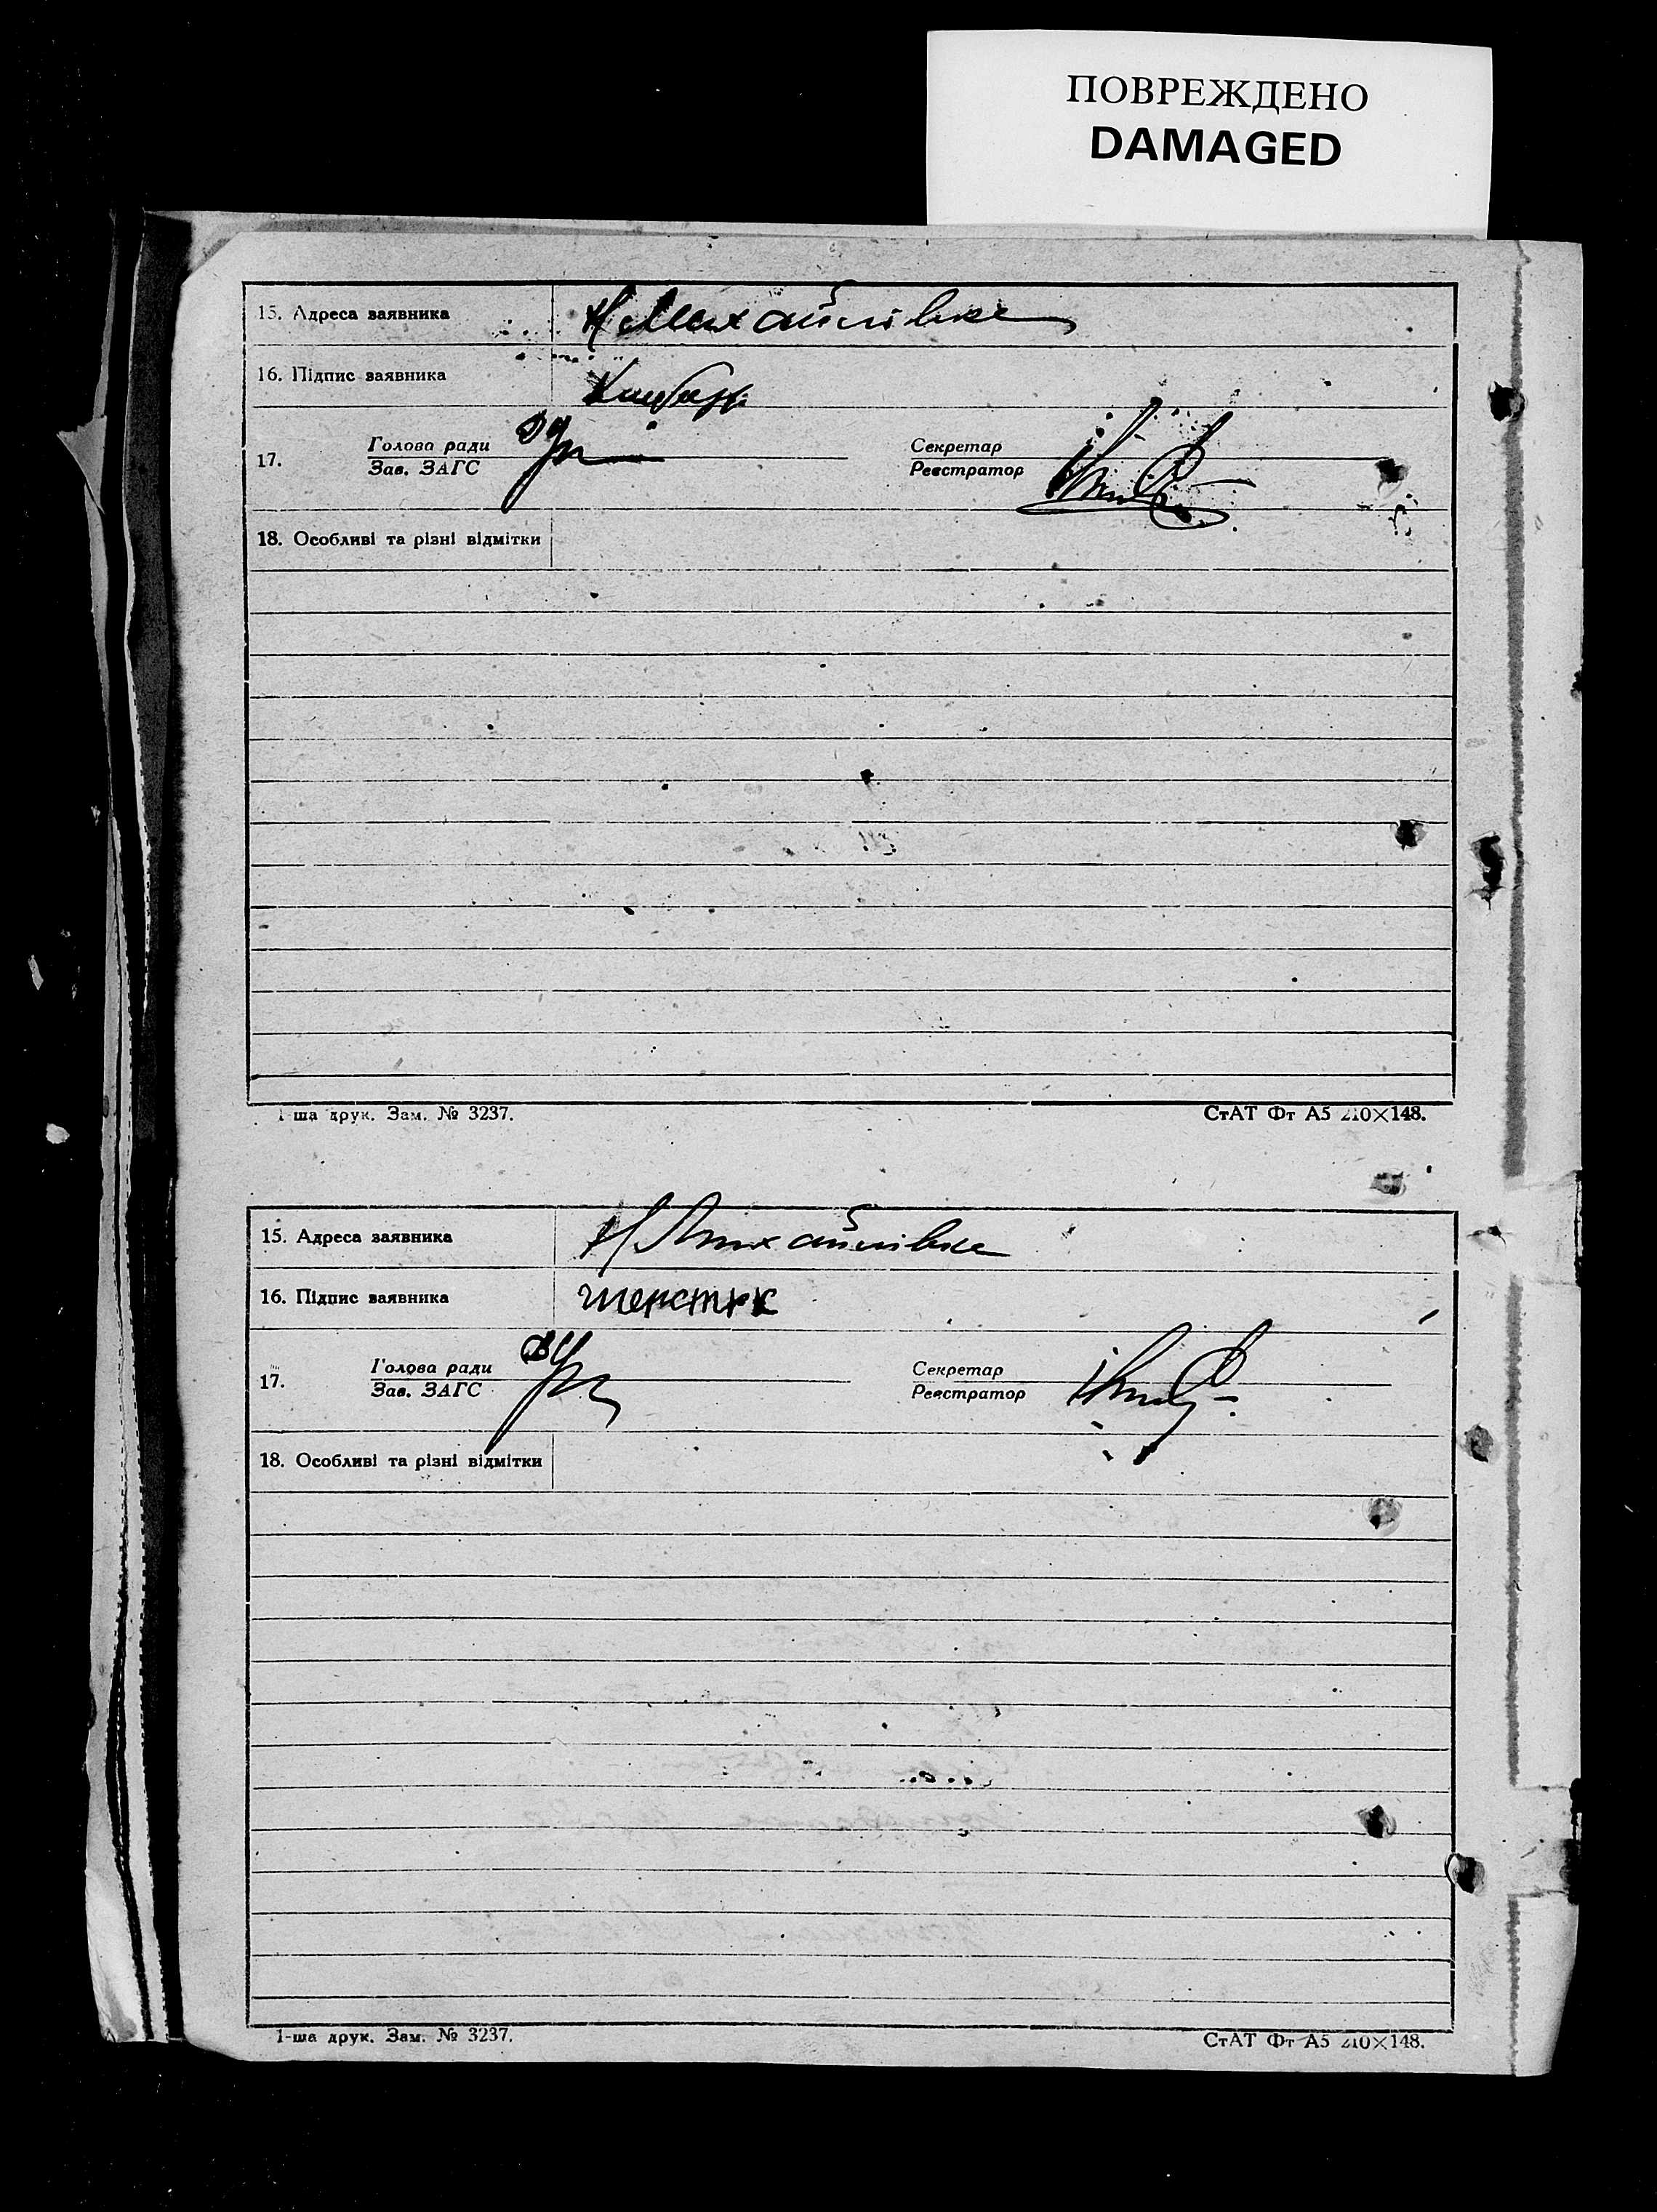 ПОВРЕЖДЕНО
DAMAGED
15. Адреса заявника Н Михайлівка
16. Підпис заявника
17. Голова ради Секретар
Зав. ЗАГС Реєстратор
18. Особливі та різні відмітки
1-ша друк. Зам. № 3237. СтАТ Фт А5 210×148.
15. Адреса заявника Н Михайлівка
16. Підпис заявника Шерстюк
17. Голова ради Секретар
Зав. ЗАГС Реєстратор
18. Особливі та різні відмітки
1-ша друк. Зам. № 3237. СтАТ Фт А5 210×148.